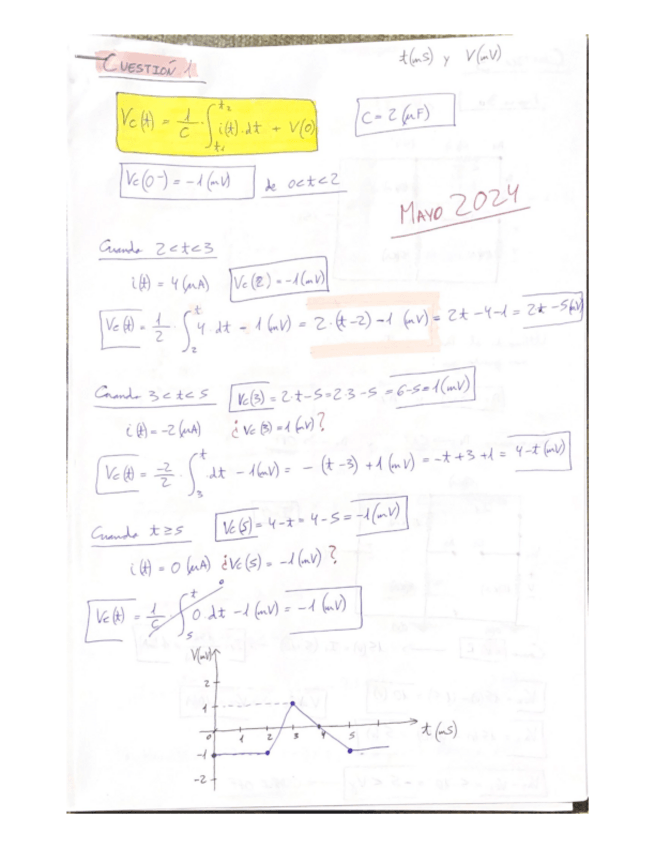 CUESTIÓN 1
t(mS) y V(mV)
Vc(t) = 1/C · ∫t1^t2 i(t)·dt + V(0)
C = 2 (μF)
Vc(0⁻) = -1 (mV) de 0<t<2
MAYO 2024
Cuando 2<t<3
i(t) = 4 (μA) Vc(2) = -1 (mV)
Vc(t) = 1/2 · ∫2^t 4 · dt - 1 (mV) = 2·(t-2) - 1 (mV) = 2t - 4 - 1 = 2t - 5 (mV)
Cuando 3<t<5 Vc(3) = 2·t - 5 = 2·3 - 5 = 6-5 = 1 (mV)
i(t) = -2 (μA) ¿Vc(3) = 1 (mV)?
Vc(t) = -2/2 · ∫3^t dt - 1 (mV) = - (t-3) + 1 (mV) = -t + 3 + 1 = 4-t (mV)
Cuando t≥5 Vc(5) = 4-t = 4-5 = -1 (mV)
i(t) = 0 (μA) ¿Vc(5) = -1 (mV)?
0
Vc(t) = 1/C · ∫5^t 0 · dt - 1 (mV) = -1 (mV)
V(mV)
2
1
0 1 2 3 4 5 t(mS)
-1
-2